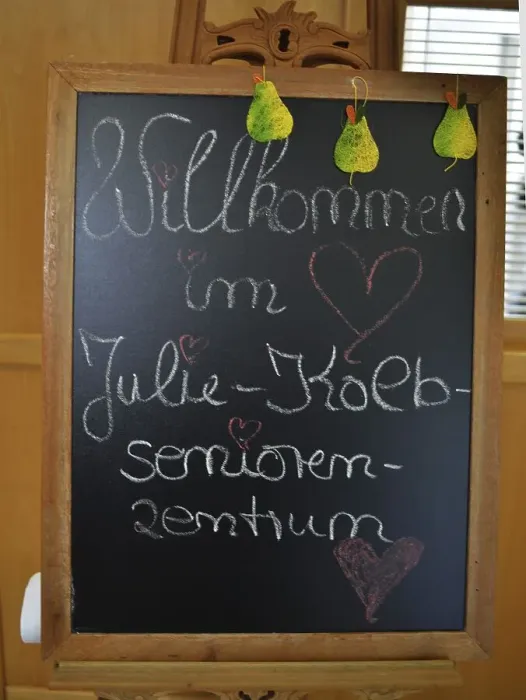 Willkommen
im
Julie-Kolb-
senioren-
zentrum